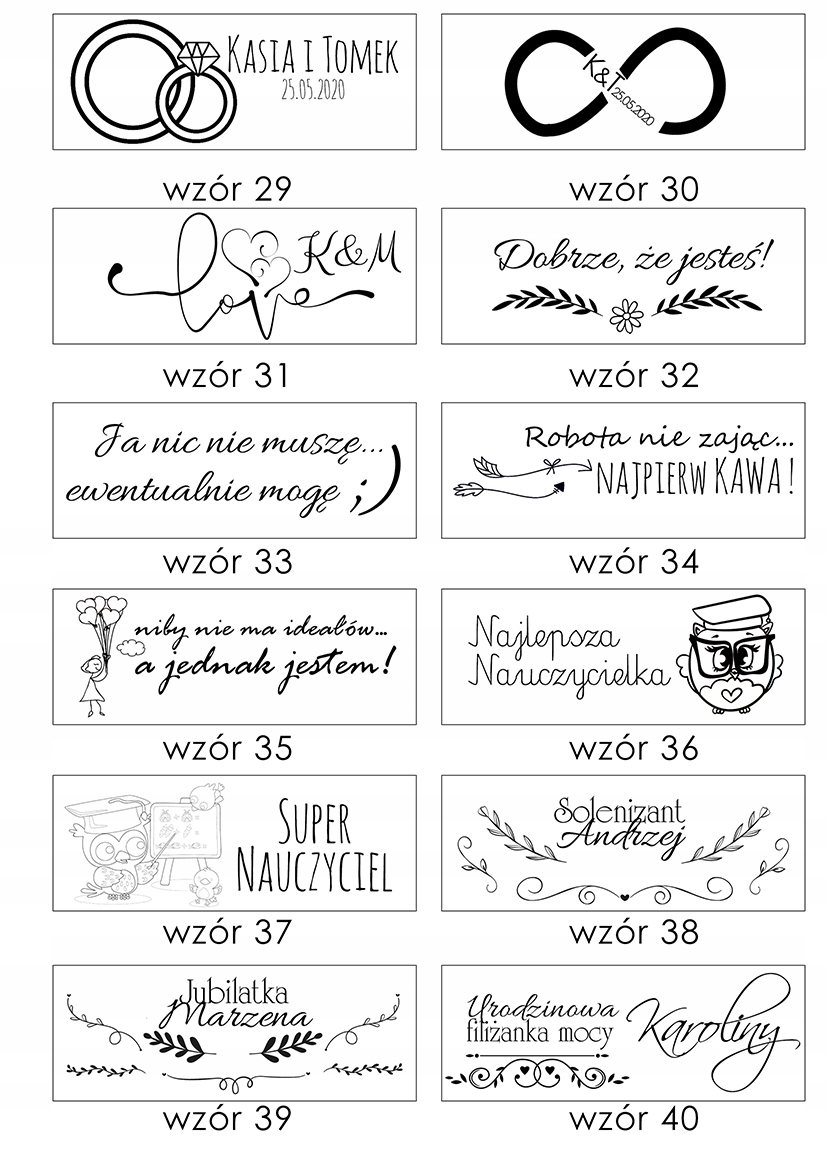 KASIA I TOMEK
25.05.2020
wzór 29
K&T 25.05.2020
wzór 30
love K&M
wzór 31
Dobrze, że jesteś!
wzór 32
Ja nic nie muszę...
ewentualnie mogę ;)
wzór 33
Robota nie zając...
NAJPIERW KAWA!
wzór 34
niby nie ma ideałów...
a jednak jestem!
wzór 35
Najlepsza
Nauczycielka
wzór 36
SUPER
NAUCZYCIEL
wzór 37
Solenizant
Andrzej
wzór 38
Jubilatka
Marzena
wzór 39
Urodzinowa
filiżanka mocy
Karoliny
wzór 40